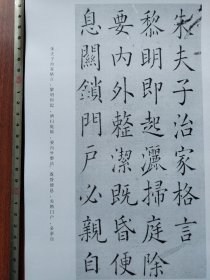 朱夫子治家格言
黎明即起灑掃庭除
要內外整潔既昏便
息關鎖門戶必親自
朱夫子治家格言，黎明即起，灑掃庭除，要內外整潔，既昏便息，關鎖門戶，必親自